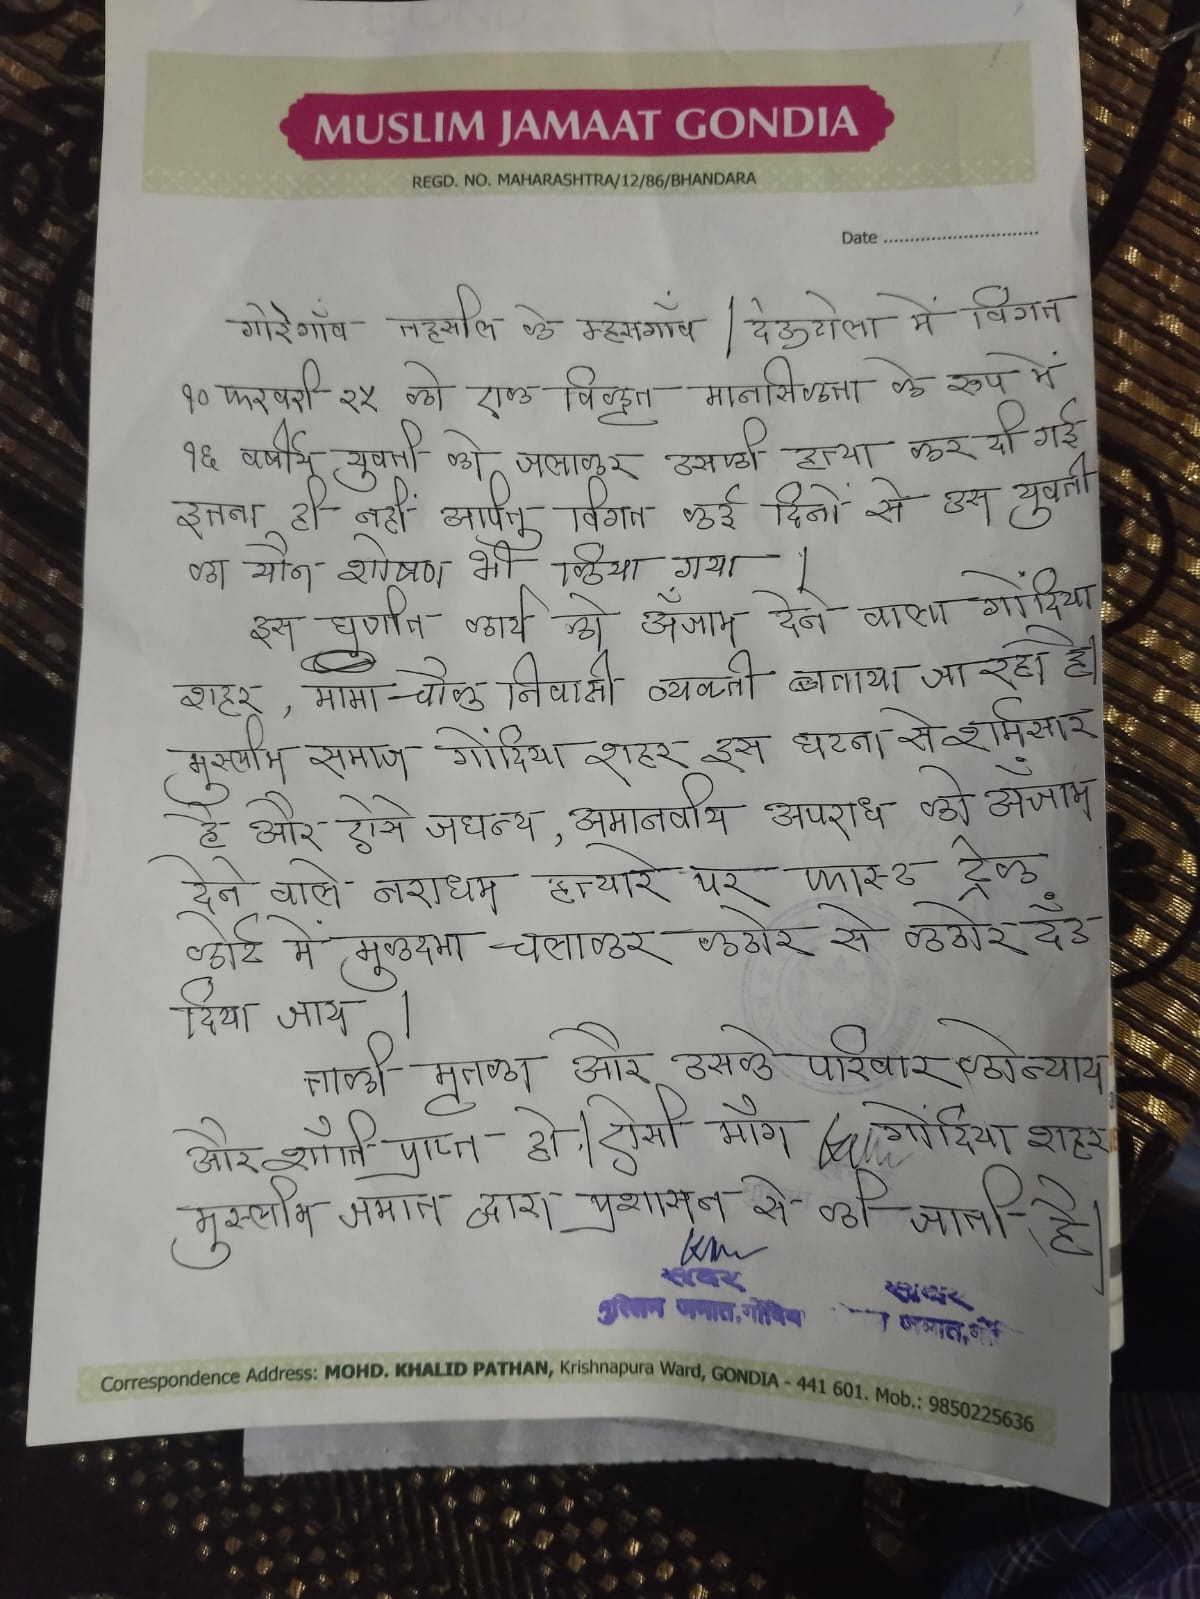 MUSLIM JAMAAT GONDIA
REGD. NO. MAHARASHTRA/12/86/BHANDARA
Date ................................
गोरेगाँव तहसील के म्हसगाँव / देऊटोला में विगत
१० फरवरी २५ को एक विकृत मानसिकता के रूप में
१६ वर्षीय युवती को जलाकर उसकी हत्या कर दी गई
इतना ही नहीं अपितु विगत कई दिनों से उस युवती
का यौन शोषण भी किया गया |
इस घृणीत कार्य को अँजाम देने वाला गोंदिया
शहर, मामा-चौक निवासी व्यक्ती बताया जा रहा है|
मुस्लीम समाज गोंदिया शहर इस घटना से शर्मिसार
है और ऐसे जघन्य, अमानवीय अपराध को अँजाम
देने वाले नराधम हत्यारे पर फास्ट ट्रेक
कोर्ट में मुकदमा चलाकर कठोर से कठोर दँड
दिया जाय |
ताकी मृतका और उसके परिवार को न्याय
और शाँती प्राप्त हो | ऐसी माँग गोंदिया शहर
मुस्लीम जमात द्वारा प्रशासन से की जाती है|
सदर सदर
मुस्लिम जमात, गोंदिया जमात, गों
Correspondence Address: MOHD. KHALID PATHAN, Krishnapura Ward, GONDIA - 441 601. Mob.: 9850225636